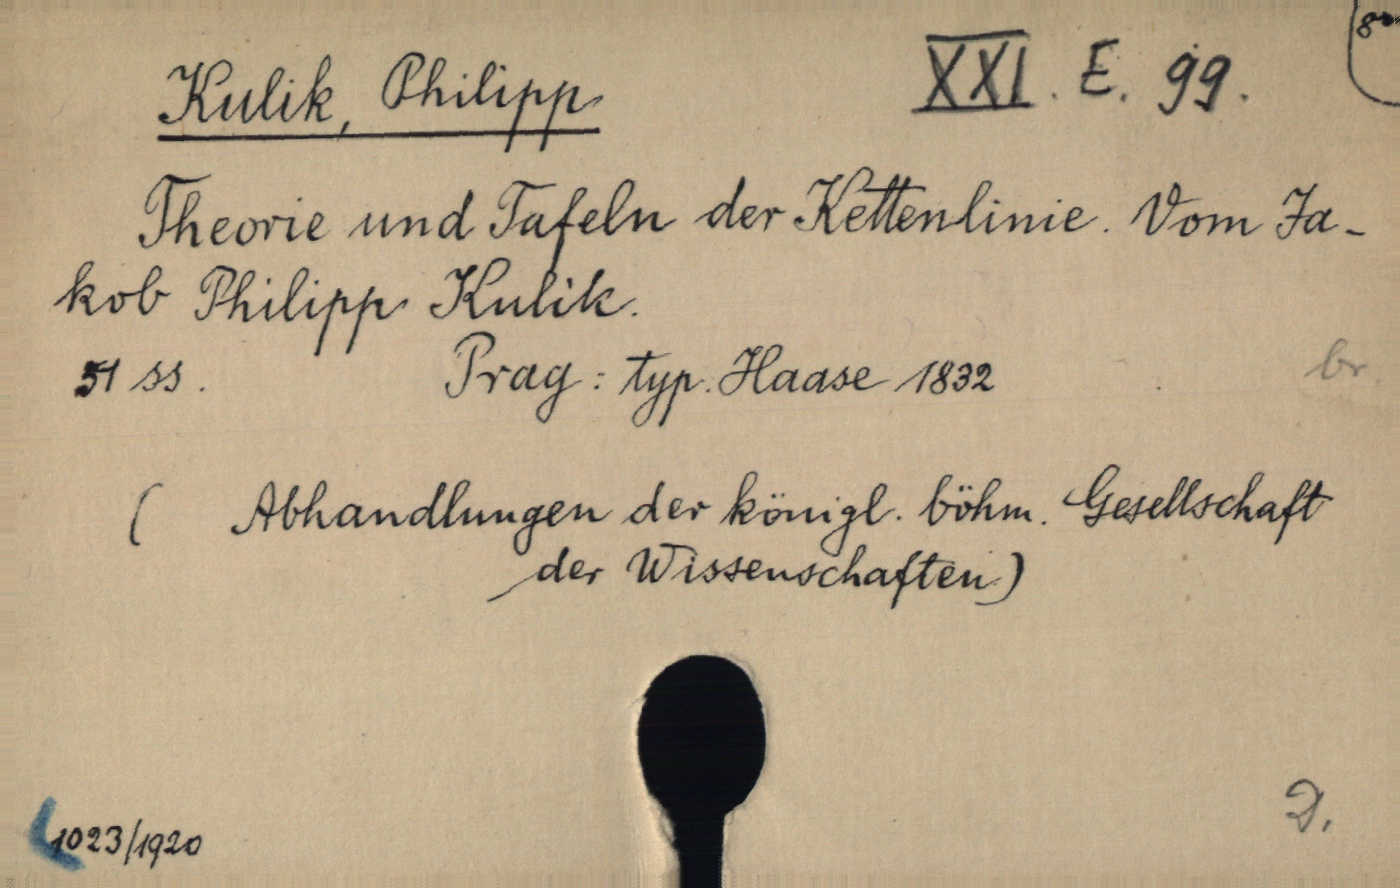 8º
Kulik, Philipp
XXI. E. 99.
Theorie und Tafeln der Kettenlinie. Vom Ja-
kob Philipp Kulik.
51 ss. Prag: typ. Haase 1832
br.
( Abhandlungen der königl. böhm. Gesellschaft
der Wissenschaften)
D.
1023/1920